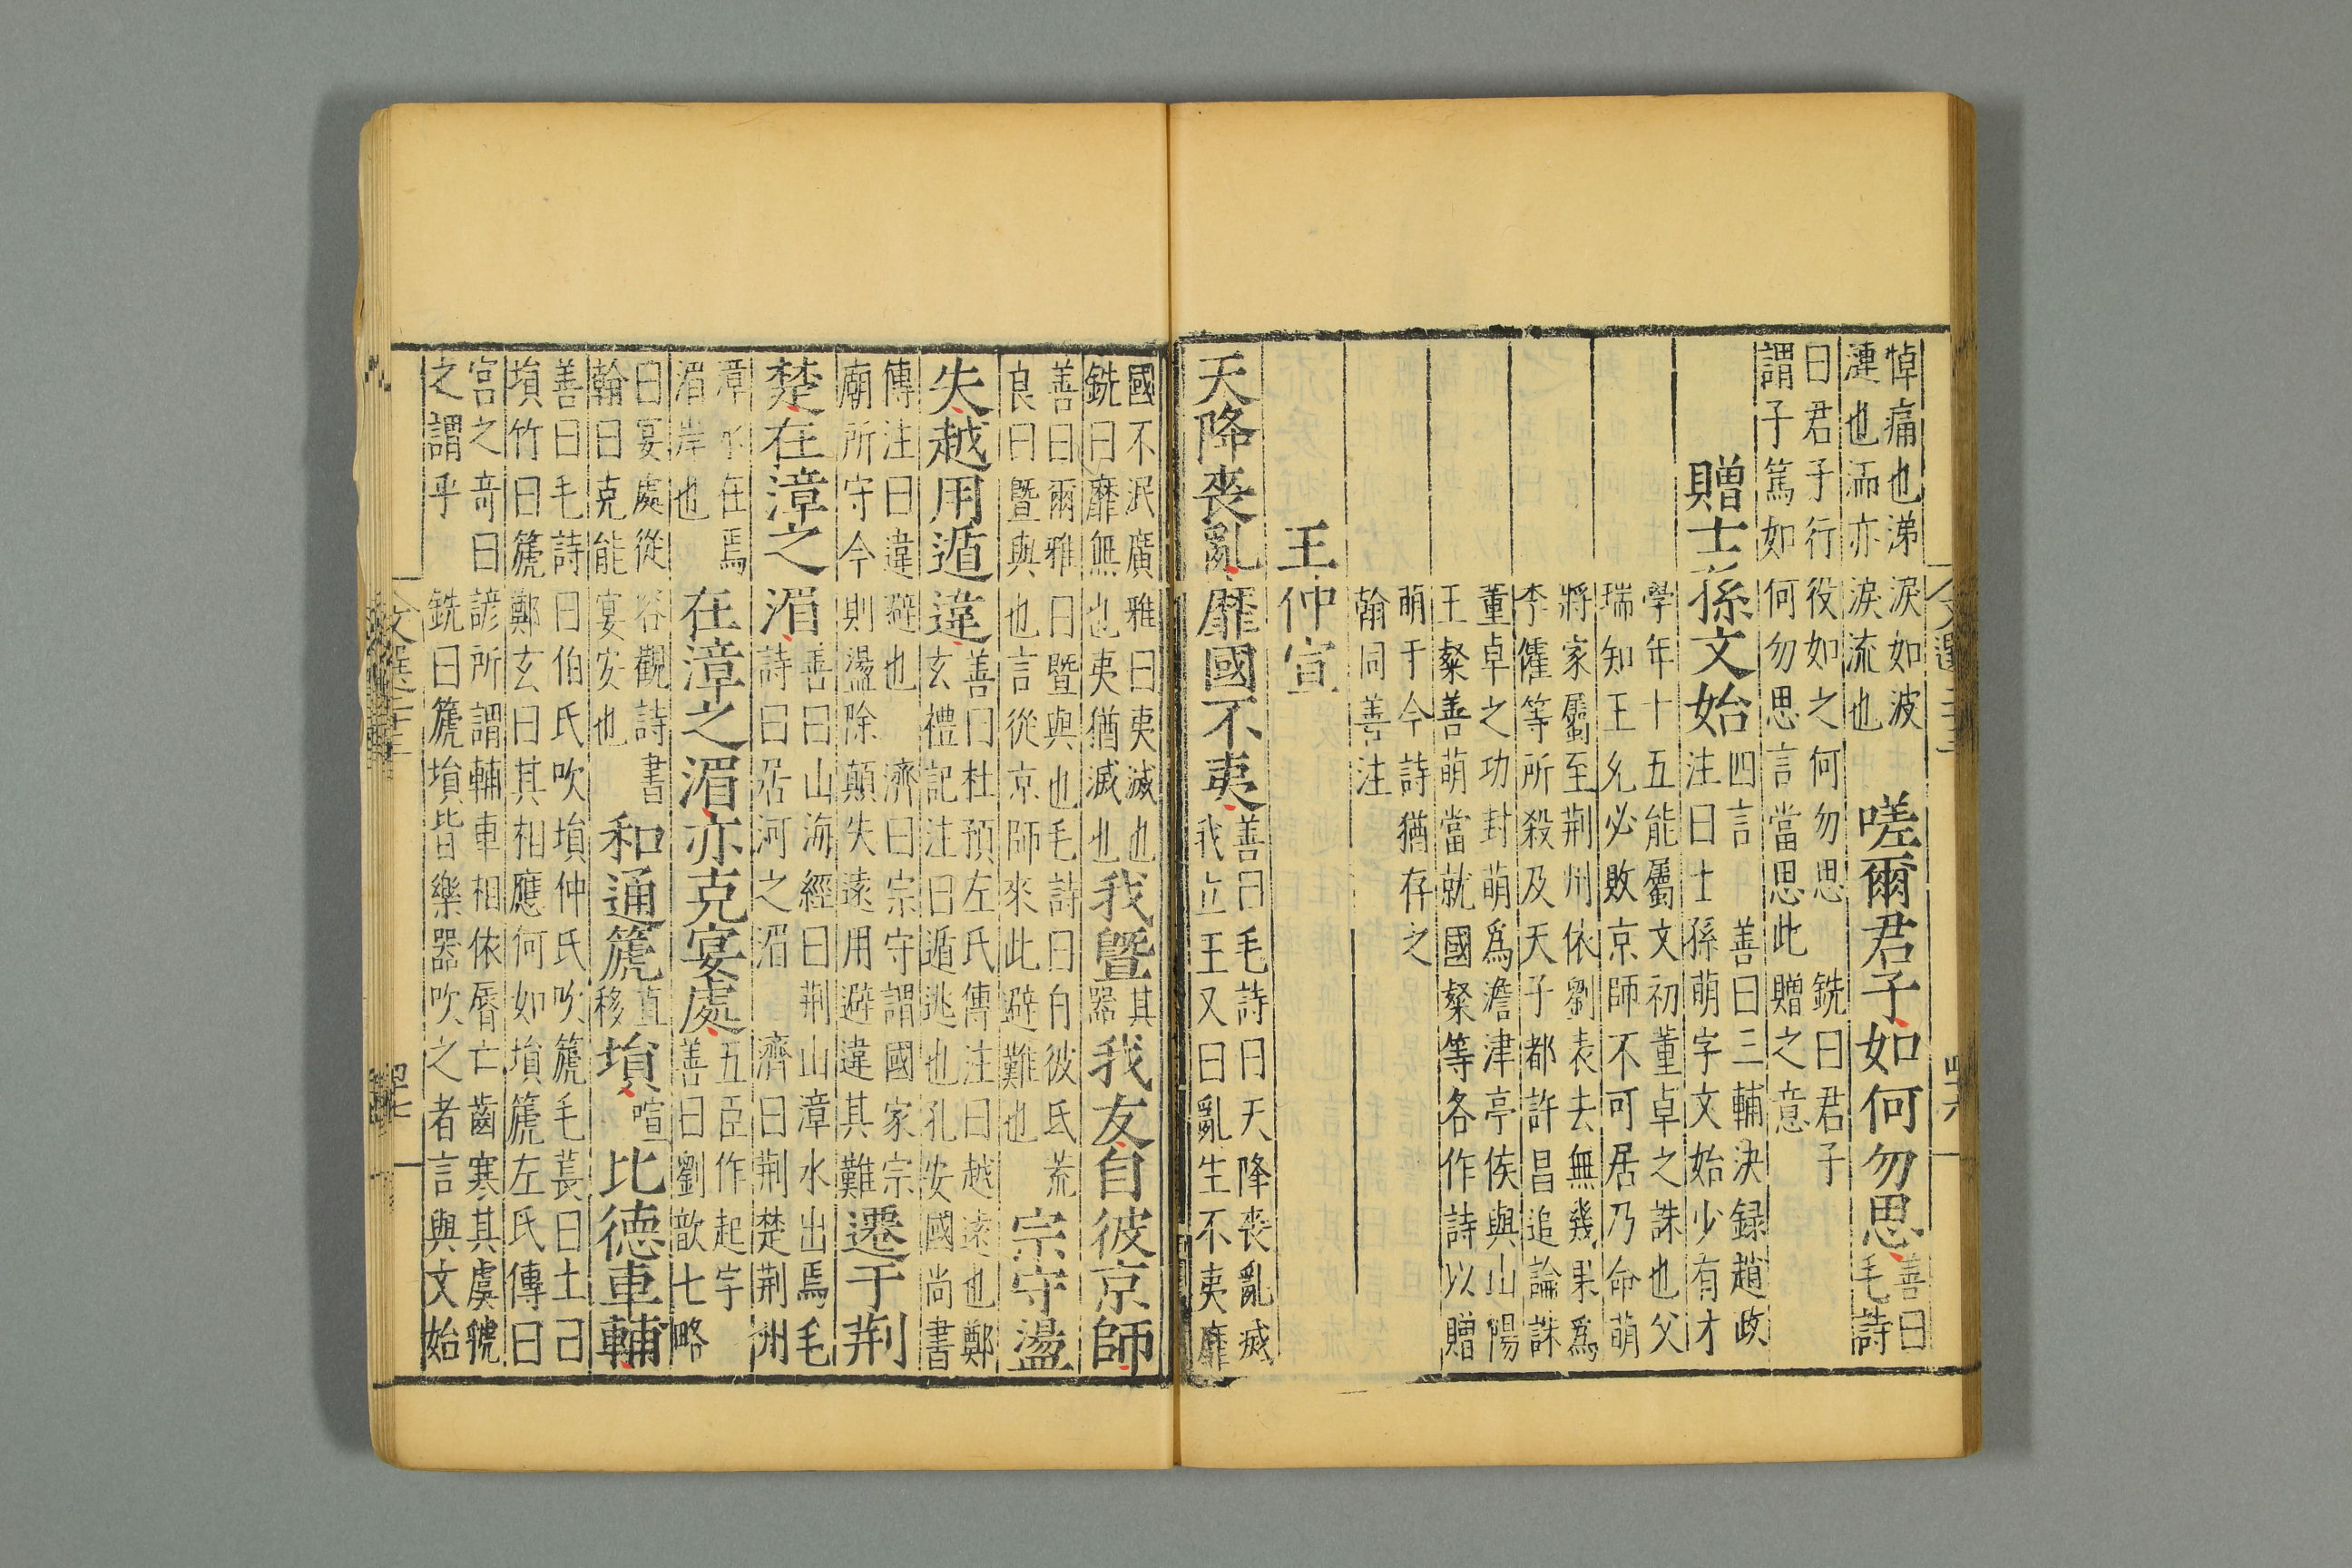 悼痛也涕淚如波
漣也洏亦淚流也
嗟爾君子如何勿思
善曰
毛詩
曰君子行役如之何勿思
銑曰君子
謂子篤如何勿思言當思此贈之意
贈士孫文始
四言
善曰三輔決録趙政
注曰士孫萌字文始少有才
學年十五能屬文初董卓之誅也父
瑞知王允必敗京師不可居乃命萌
將家屬至荆州依劉表去無幾果爲
李傕等所殺及天子都許昌追論誅
董卓之功封萌爲澹津亭侯與山陽
王粲善萌當就國粲等各作詩以贈
萌于今詩猶存之
翰同善注
王仲宣
天降喪亂靡國不夷
善曰毛詩曰天降喪亂滅
我立王又曰亂生不夷靡
國不泯廣雅曰夷滅也
銑曰靡無也夷猶滅也
我曁
其
器
我友自彼京師
善曰爾雅曰曁與也毛詩曰自彼氐荒
良曰曁與也言從京師來此避難也
宗守盪
失越用遁違
善曰杜預左氏傳注曰越遠也鄭
玄禮記注曰遁逃也孔安國尚書
傳注曰違避也
濟曰宗守謂國家宗
廟所守今則盪除顛失遠用避違其難
遷于荆
楚在漳之湄
善曰山海經曰荆山漳水出焉毛
詩曰居河之湄
濟曰荆楚荆州
漳水在焉
湄岸也
在漳之湄亦克宴處
五臣作起字
善曰劉歆七略
曰宴處從容觀詩書
翰曰克能宴安也
和通篪
直
移
塤
喧
比德車輔
善曰毛詩曰伯氏吹塤仲氏吹篪毛萇曰土曰
塤竹曰篪鄭玄曰其相應何如塤篪左氏傳曰
宮之奇曰諺所謂輔車相依脣亡齒寒其虞虢
之謂乎
銑曰篪塤皆樂器吹之者言與文始